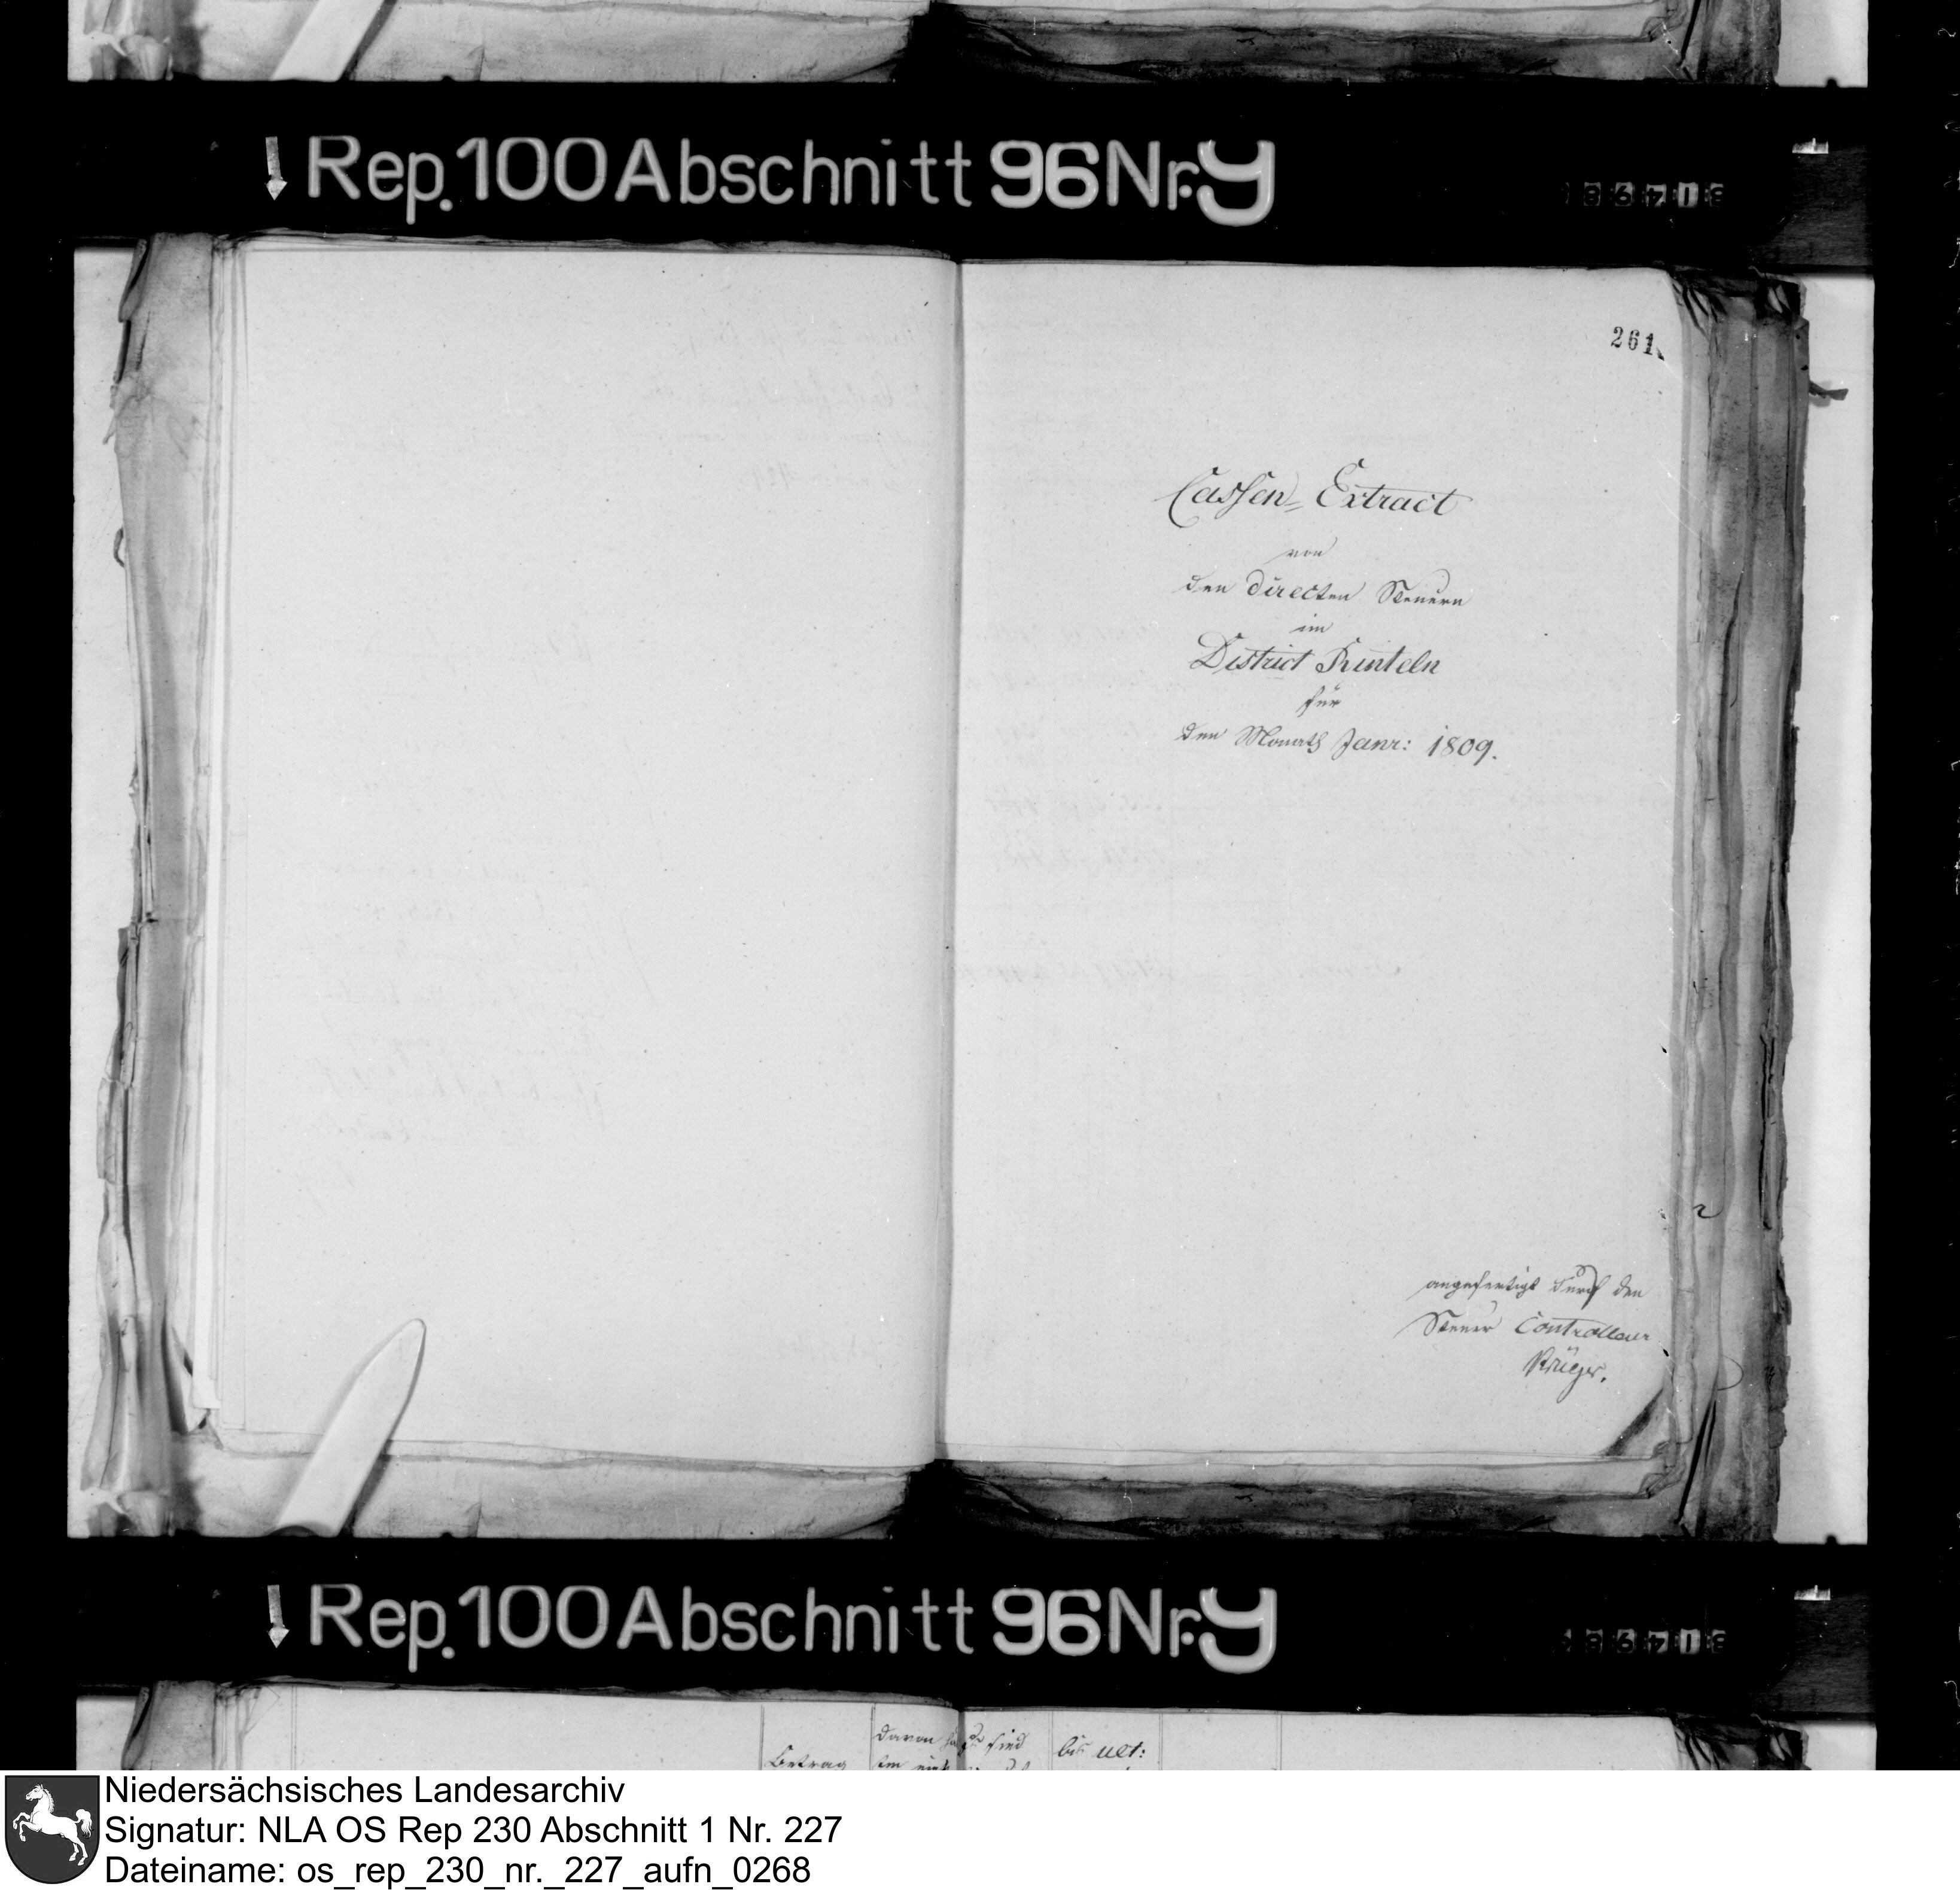 Rep. 100 Abschnitt 96 Nr. 9
261
Cassen= Extract
von
den directen Steuern
im
District Rinteln
für
den Monath Janr: 1809.
angefertigt durch den
Steuer Controlleur
Krüger.
Rep. 100 Abschnitt 96 Nr. 9
Betrag
davon
sind
bis ult:
Niedersächsisches Landesarchiv
Signatur: NLA OS Rep 230 Abschnitt 1 Nr. 227
Dateiname: os_rep_230_nr._227_aufn_0268